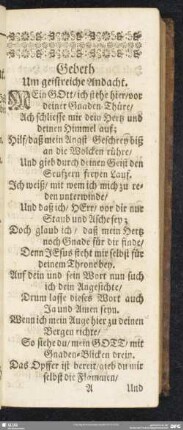 Gebeth
Um geistreiche Andacht.
MEin GOtt/ ich stehe hier/ vor
deiner Gnaden Thüre/
Ach schliesse mir dein Hertz und
deinen Himmel auf:
Hilf/ daß mein Angst-Geschrey biß
an die Wolcken rühre/
Und gieb durch deinen Geist den
Seufzern freyen Lauf.
Ich weiß/ mit wem ich mich zu re-
den unterwinde/
Und daß ich/ HErr/ vor dir nur
Staub und Asche sey;
Doch glaub ich/ daß mein Hertz
noch Gnade für dir finde/
Denn JEsus steht mir selbst für
deinem Throne bey.
Auf dein und sein Wort nun such
ich dein Angesichte/
Drum lasse dieses Wort auch
Ja und Amen seyn.
Wenn ich mein Auge hier zu deinen
Bergen richte/
So siehe du/ mein GOTT/ mit
Gnaden-Blicken drein.
Das Opffer ist bereit/ gieb du mir
selbst die Flammen/
A Und